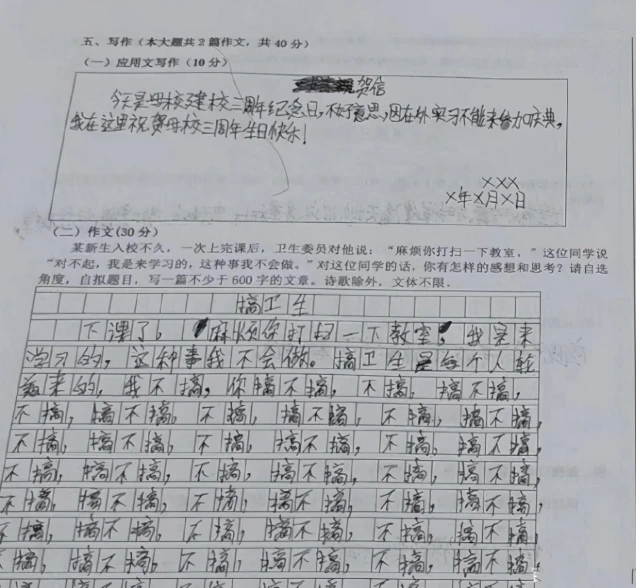 五、写作（本大题共2篇作文，共40分）
（一）应用文写作（10分）
贺信
今天是母校建校三周年纪念日，不好意思，因在外实习不能来参加庆典，
我在这里祝贺母校三周年生日快乐！
XXX
X年X月X日
（二）作文（30分）
某新生入校不久，一次上完课后，卫生委员对他说：“麻烦你打扫一下教室，”这位同学说
“对不起，我是来学习的，这种事我不会做。”对这位同学的话，你有怎样的感想和思考？请自选
角度，自拟题目，写一篇不少于600字的文章。诗歌除外，文体不限。
搞卫生
下课了。麻烦你打扫一下教室，我是来
学习的，这种事我不会做。搞卫生是每个人轮
来的，我不搞，你搞不搞，不搞，搞不搞，
不搞，搞不搞，不搞，搞不搞，不搞，搞不搞，
不搞，搞不搞，不搞，搞不搞，不搞，搞不搞，
不搞，搞不搞，不搞，搞不搞，不搞，搞不搞，
不搞，搞不搞，不搞，搞不搞，不搞，搞不搞，
不搞，搞不搞，不搞，搞不搞，不搞，搞不搞，
不搞，搞不搞，不搞，搞不搞，不搞，搞不搞，